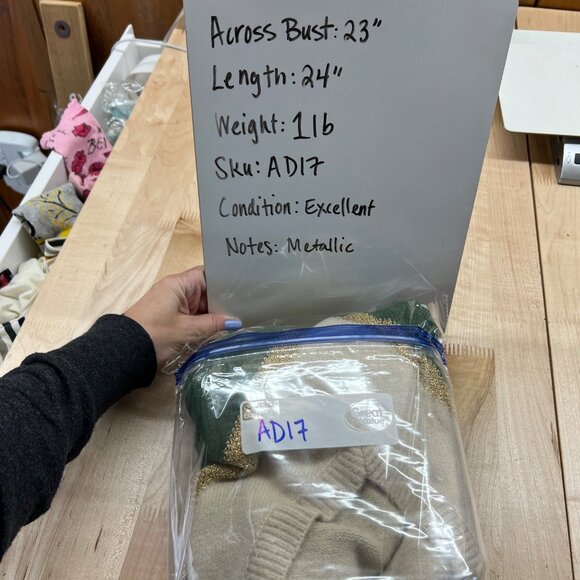 Across Bust: 23"
Length: 24"
Weight: 1lb
Sku: AD17
Condition: Excellent
Notes: Metallic
Great Value
AD17